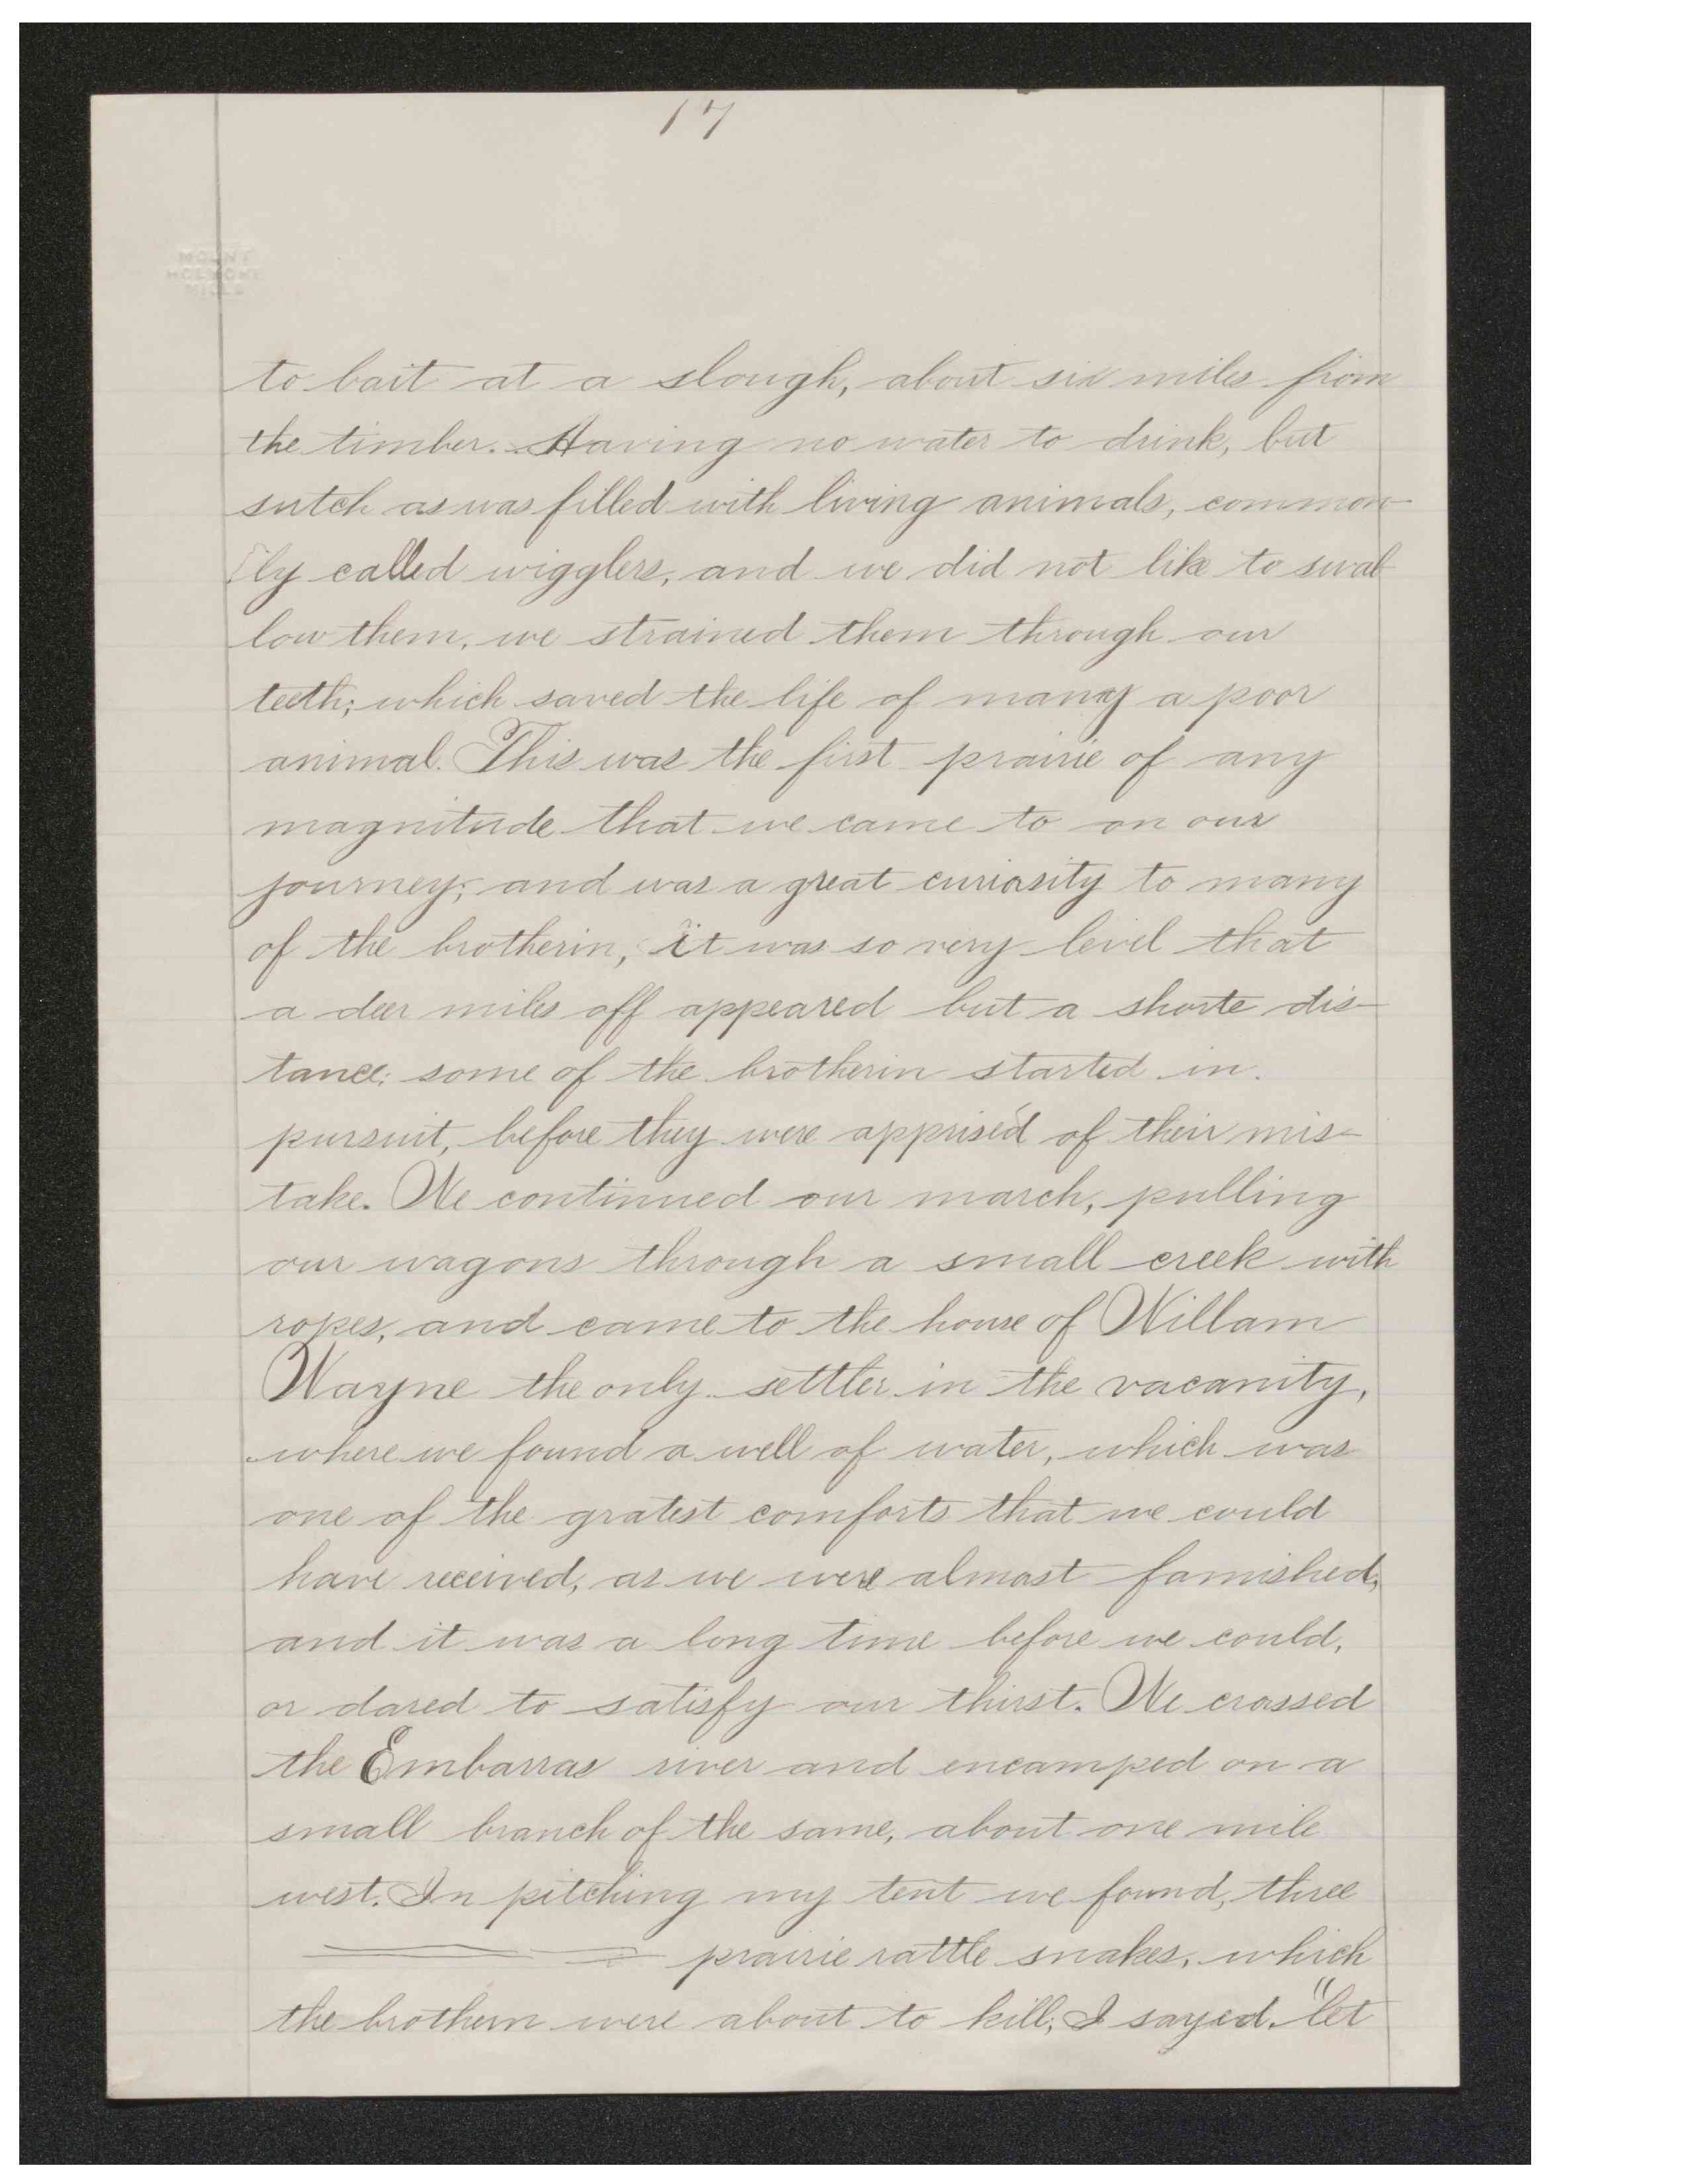 17
MOUNT
HOLYOKE
MILLS
to bait at a slough, about six miles from
the timber. Having no water to drink, but
sutch as was filled with living animals, common-
ly called wigglers, and we did not like to swal-
low them, we strained them through our
teeth; which saved the life of many a poor
animal. This was the first prairie of any
magnitude that we came to on our
journey; and was a great curiosity to many
of the brotherin, it was so very level that
a deer miles off appeared but a shorte dis-
tance; some of the brotherin started in
pursuit, before they were apprised of their mis-
take. We continued our march, pulling
our wagons through a small creek with
ropes, and came to the house of Willam
Wayne the only settler in the vacanity,
where we found a well of water, which was
one of the gratest comforts that we could
have received, as we were almost famished,
and it was a long time before we could,
or dared to satisfy our thirst. We crossed
the Embarras river and encamped on a
small branch of the same, about one mile
west. In pitching my tent we found, three
prairie rattle snakes, which
the brothern were about to kill; I sayed. "let